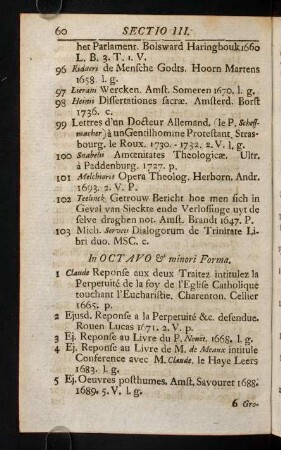 60 SECTIO III.
het Parlament. Bolsward Haringhouk 1660
L. B. 3. T. 1. V.
96 Ridderi de Mensche Godts. Hoorn Martens
1658. l. g.
97 Lierani Wercken. Amst. Someren 1670. l. g.
98 Hermi Dissertationes sacræ. Amsterd. Borst
1736. c.
99 Lettres d'un Docteur Allemand, (le P. Scheff-
macher) à un Gentilhomme Protestant. Stras-
bourg. le Roux. 1730. - 1732. 2. V. l. g.
100 Snabelii Amœnitates Theologicæ. Ultr.
à Paddenburg. 1727. p.
101 Melchioris Opera Theolog. Herborn. Andr.
1693. 2. V. P.
102 Teelinck Getrouw Bericht hoe men sich in
Geval van Sieckte ende Verlossinge uyt de
selve draghen not. Amst. Brandt 1647. P.
103 Mich. Serveti Dialogorum de Trinitate Li-
bri duo. MSC. c.
In OCTAVO & minori Forma.
1 Claude Reponse aux deux Traitez intitulez la
Perpetuité de la foy de l'Eglise Catholique
touchant l'Eucharistie. Charenton. Cellier
1665. p.
2 Ejusd. Reponse a la Perpetuité &c. defendue.
Rouen Lucas 1671. 2. V. p.
3 Ej. Reponse au Livre du P. Nouet. 1668. l. g.
4 Ej. Reponse au Livre de M. de Meaux intitule
Conference avec M. Claude. le Haye Leers
1683. l. g.
5 Ej. Oeuvres posthumes. Amst. Savouret 1688.
1689. 5. V. l. g.
6 Gro-